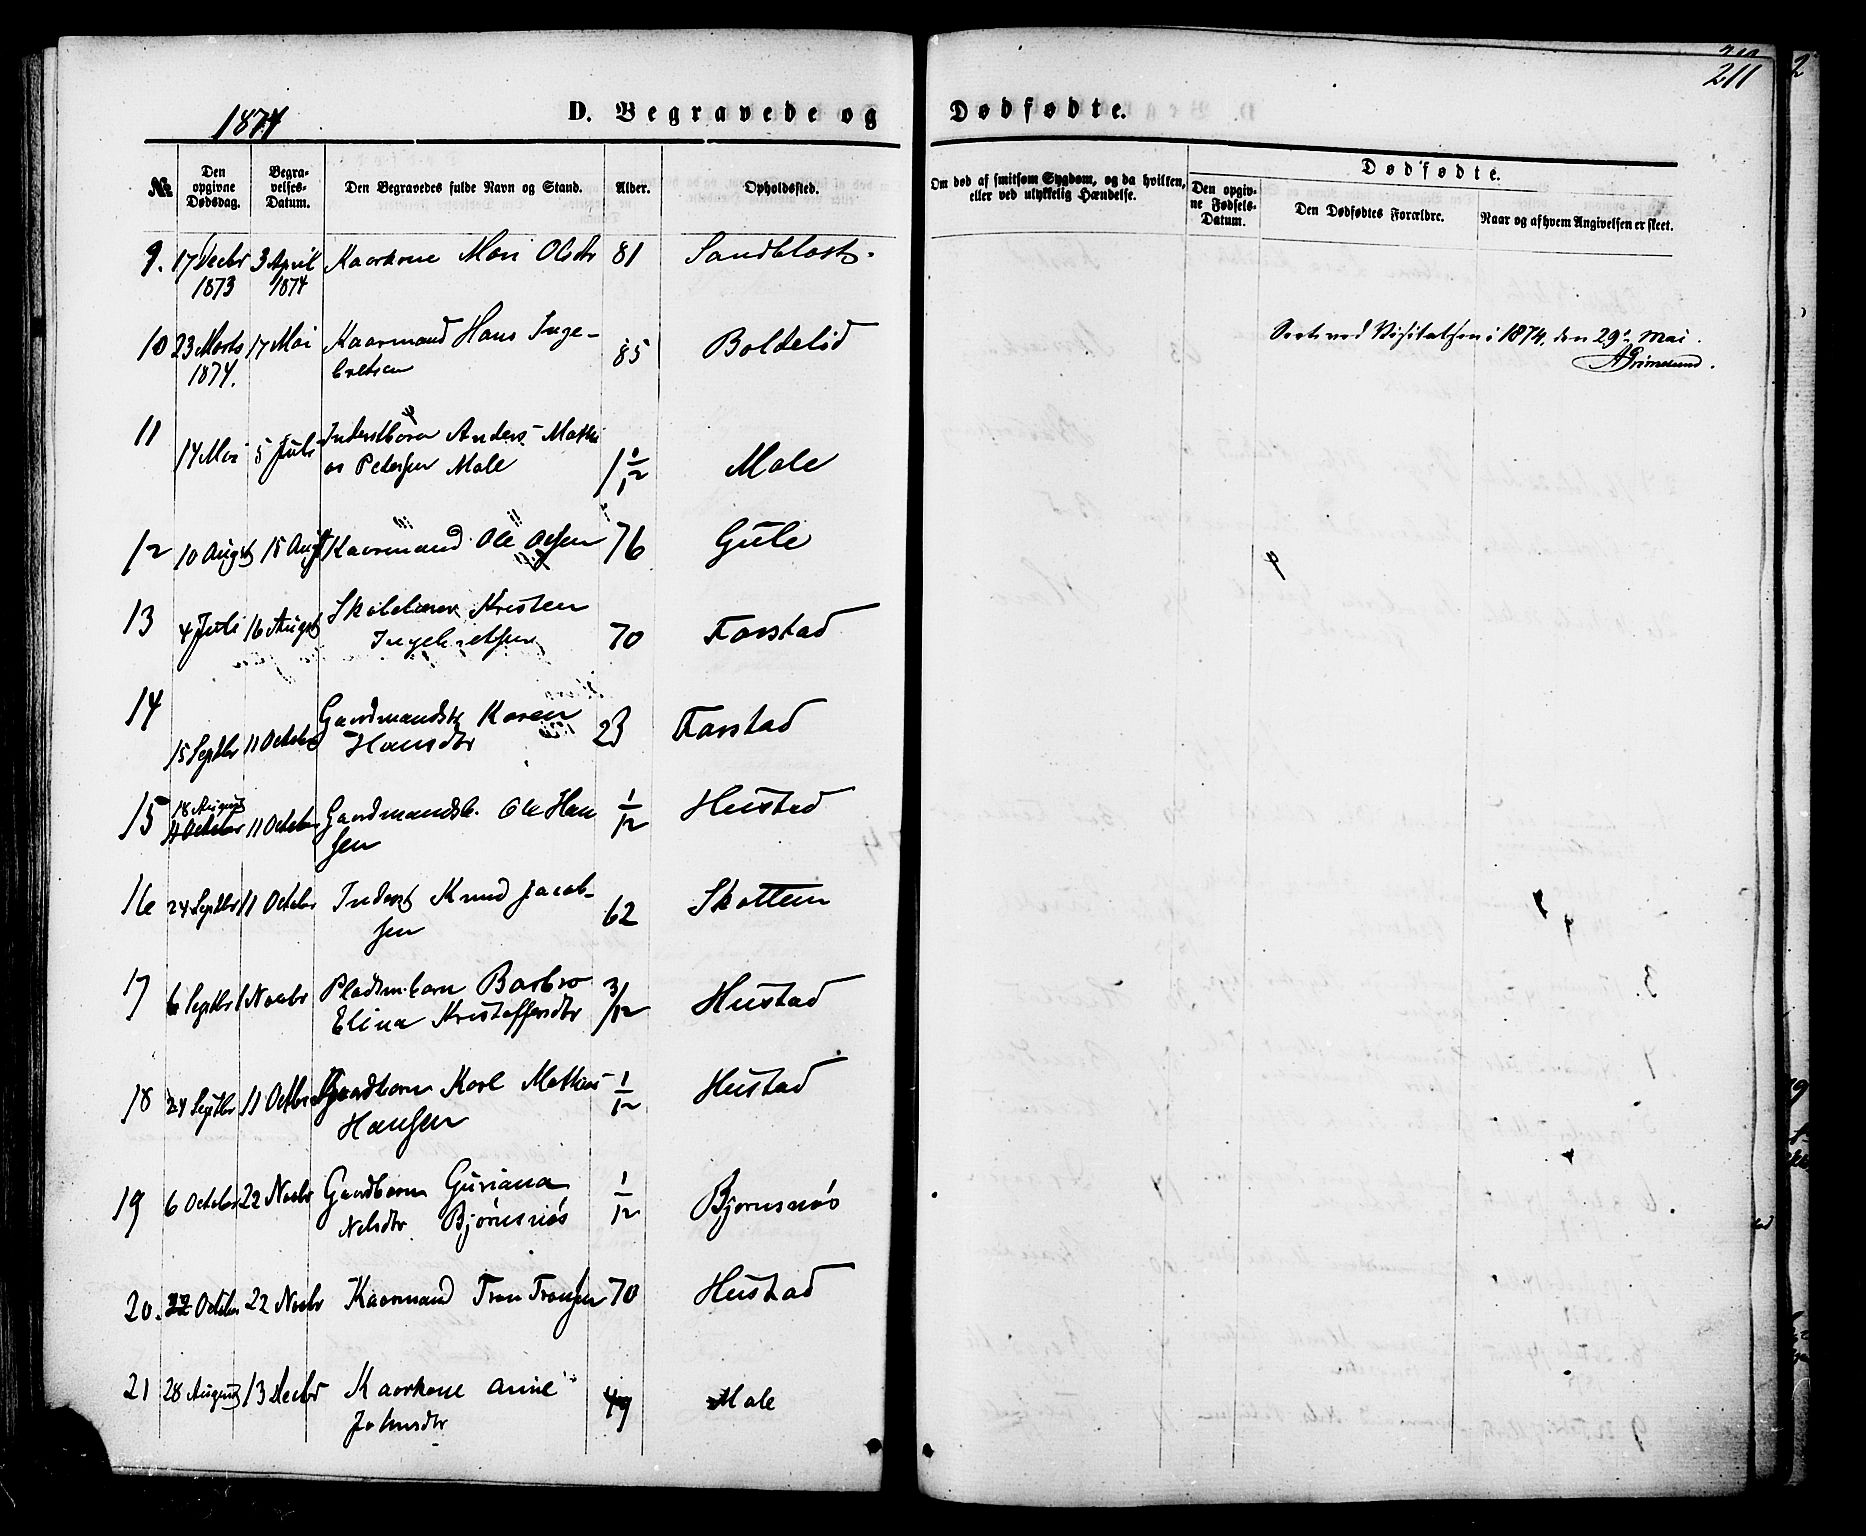 211
1874
D. Begravede og Dødfødte.
№
Den opgivne Dødsdag.
Begravelses-Datum.
Den Begravedes fulde Navn og Stand.
Alder.
Opholdssted.
Om død af smitsom Sygdom, og da hvilken, eller ved ulykkelig Hændelse.
Dødfødte.
Den opgivne Fødsels-Datum.
Den Dødfødtes Forældre.
Naar og af hvem Angivelsen er skeet.
9. 17 Decbr 3 April Kaarkone Mari Olsdtr 81 Sandblost.
1873 1874
10 23 Marts 17 Mai Kaarmand Hans Inge-
1874. bretsen 85 Boldelid
i 1874, den 29de Mai.
AGrimelund.
11 14 Mai 5 Juli Inderstbarn Anders Mathi
as Pedersen Male 1 1/12 Male
12 10 Augst 15 Augst Kaarmand Ole Olsen 76 Gule
13 4 Juli 16 Augst Skolelærer Kristen
Ingebretsen 70 Farstad
14 15 Septbr 11 October Gaardmandsk Karen
Hansdtr 23 Farstad
15 18 August 11 October Gaardmandsb. Ole Han
sen 1/12 Hustad
16 24 Septbr 11 October Inderst Knud Jacob-
sen 62 Skottem
17 6 Septbr 1 Novbr Pladsmbarn Barbro
Elina Kristoffersdtr 3/12 Hustad
18 24 Septbr 11 Octbr Gaardbarn Karl Mathias
Hansen 1/12 Hustad
19 6 October 22 Novbr Gaardbarn Guriana
Nelsdtr Bjørnsnøs 1/12 Bjørnsnøs
20. 22 October 22 Novbr Kaarmand Tron Tronsen 70 Hustad
21 28 August 13 Decbr Kaarkone Anne
Johnsdtr 49 Male